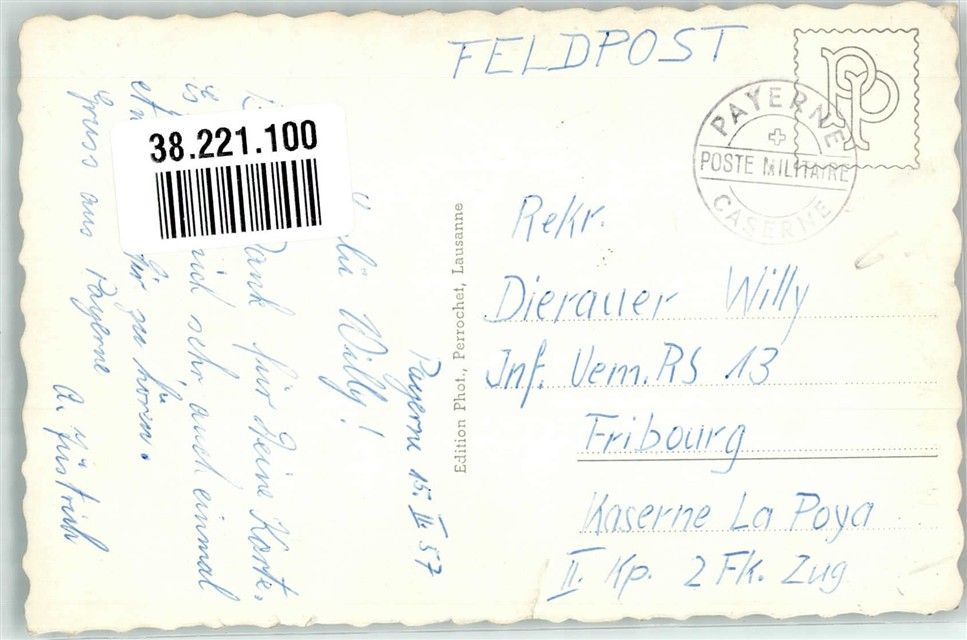 FELDPOST
PP
PAYERNE
POSTE MILITAIRE
CASERNE
Rekr.
Dierauer Willy
Inf. Uem. RS 13
Fribourg
Kaserne La Poya
II. Kp. 2 Fk. Zug
Edition Phot., Perrochet, Lausanne
38.221.100
Payerne 15. II 57
Willy!
für Deine Karte.
sehr, auch einmal
zu hören.
Gruss aus Payerne